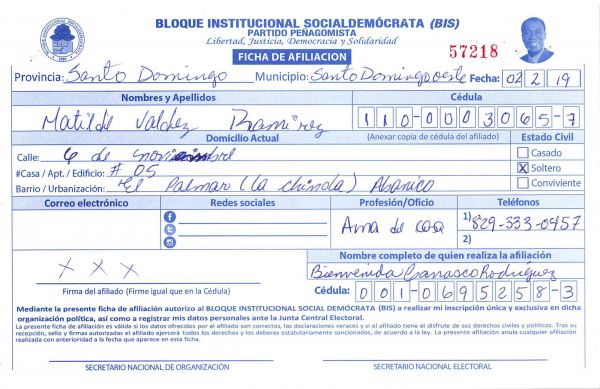 BLOQUE INSTITUCIONAL SOCIALDEMÓCRATA (BIS)
PARTIDO PEÑAGOMISTA
Libertad, Justicia, Democracia y Solidaridad
FICHA DE AFILIACION
57218
Provincia: Santo Domingo Municipio: Santo Domingo oeste Fecha: 02 2 19
Nombres y Apellidos Cédula
Matilde Valdez Ramirez 110-0003065-7
Domicilio Actual (Anexar copia de cédula del afiliado) Estado Civil
Calle: 6 de noviembre Casado
#Casa / Apt. / Edificio: # 05 X Soltero
Barrio / Urbanización: El Palmar (la chinola) Abanico Conviviente
Correo electrónico Redes sociales Profesión/Oficio Teléfonos
Ama de casa 1) 829-333-0457
2)
Nombre completo de quien realiza la afiliación
X X X Bienvenida Carrasco Rodríguez
Firma del afiliado (Firme igual que en la Cédula) Cédula: 001-0695258-3
Mediante la presente ficha de afiliación autorizo al BLOQUE INSTITUCIONAL SOCIAL DEMÓCRATA (BIS) a realizar mi inscripción única y exclusiva en dicha
organización política, así como a registrar mis datos personales ante la Junta Central Electoral.
La presente ficha de afiliación es válida si los datos ofrecidos por el afiliado son correctos, las declaraciones veraces y si el afiliado tiene el disfrute de sus derechos civiles y políticos. Tras su
recepción, sello y firmas autorizadas el afiliado ejercerá todos los derechos y los deberes estatutariamente sancionados, de acuerdo a la ley. La presente afiliación anula cualquier afiliación
realizada con anterioridad a la fecha que aparece en esta ficha.
SECRETARIO NACIONAL DE ORGANIZACIÓN SECRETARIO NACIONAL ELECTORAL